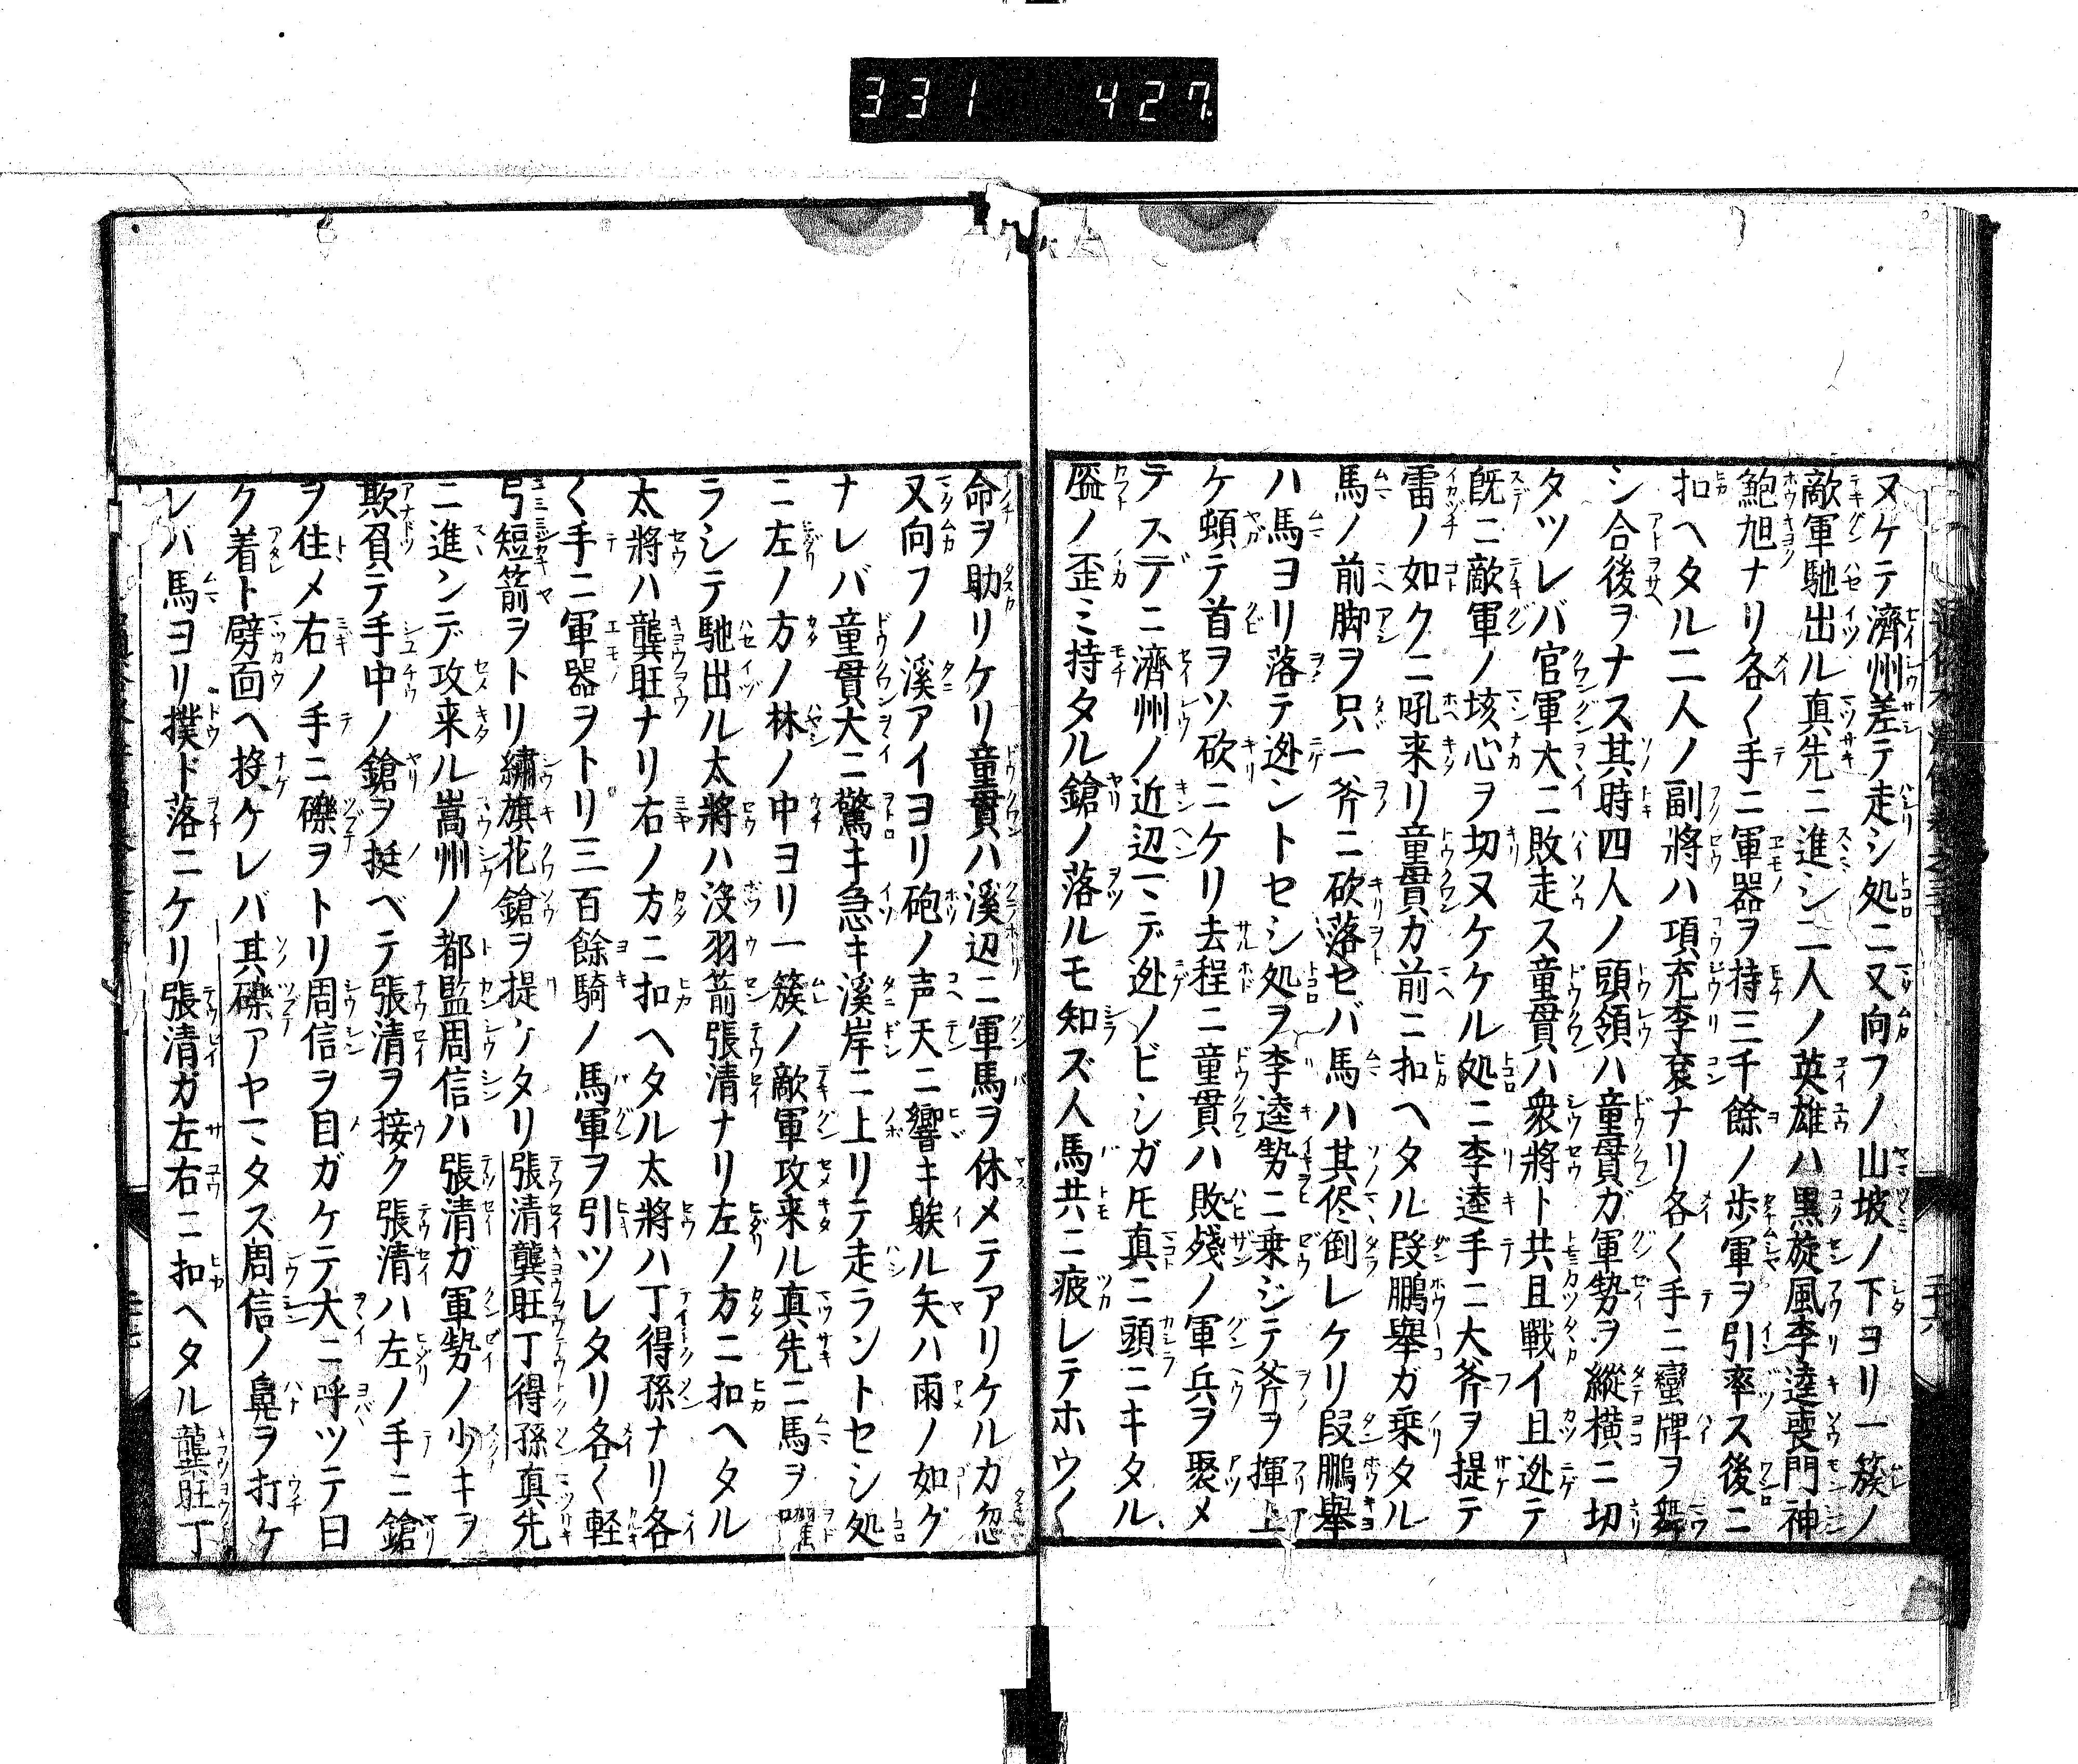 331 427
ヌケテ濟州差テ走シ処ニ又向フノ山坡ノ下ヨリ一簇ノ
敵軍馳出ル真先ニ進シ二人ノ英雄ハ黒旋風李逵喪門神
鮑旭ナリ各く手ニ軍器ヲ持三千餘ノ歩軍ヲ引率ス後ニ
扣ヘタル二人ノ副將ハ項充李袞ナリ各く手ニ蠻牌ヲ舞
シ合後ヲナス其時四人ノ頭領ハ童貫ガ軍勢ヲ縱横ニ切
タツレバ官軍大ニ敗走ス童貫ハ衆將ト共且戰イ且迯テ
既ニ敵軍ノ垓心ヲ切ヌケケル処ニ李逵手ニ大斧ヲ提テ
雷ノ如クニ吼来リ童貫ガ前ニ扣ヘタル段鵬舉ガ乗タル
馬ノ前脚ヲ只一斧ニ砍落セバ馬ハ其侭倒レケリ段鵬舉
ハ馬ヨリ落テ迯ントセシ処ヲ李逵勢ニ乗ジテ斧ヲ揮上
ケ頓テ首ヲソ砍ニケリ去程ニ童貫ハ敗殘ノ軍兵ヲ聚メ
テスデニ濟州ノ近辺マデ迯ノビシガ𪜈真ニ頭ニキタル
盔ノ歪ミ持タル鎗ノ落ルモ知ズ人馬共ニ疲レテホウく
命ヲ助リケリ童貫ハ溪辺ニ軍馬ヲ休メテアリケルカ忽
又向フノ溪アイヨリ砲ノ声天ニ響キ躲ル矢ハ雨ノ如グ
ナレバ童貫大ニ驚キ急キ溪岸ニ上リテ走ラントセシ処
ニ左ノ方ノ林ノ中ヨリ一簇ノ敵軍攻来ル真先ニ馬ヲ躍
ラシテ馳出ル太將ハ沒羽箭張清ナリ左ノ方ニ扣ヘタル
太將ハ龔旺ナリ右ノ方ニ扣ヘタル太將ハ丁得孫ナリ各
く手ニ軍器ヲトリ三百餘騎ノ馬軍ヲ引ツレタリ各く軽
弓短箭ヲトリ繡旗花鎗ヲ提ケタリ張清龔旺丁得孫真先
ニ進ンデ攻来ル嵩州ノ都監周信ハ張清ガ軍勢ノ少キヲ
欺負テ手中ノ鎗ヲ挺ベテ張清ヲ接ク張清ハ左ノ手ニ鎗
ヲ住メ右ノ手ニ礫ヲトリ周信ヲ目ガケテ大ニ呼ツテ曰
ク着ト劈面ヘ投ケレバ其礫アヤマタズ周信ノ鼻ヲ打ケ
レバ馬ヨリ撲ト落ニケリ張清ガ左右ニ扣ヘタル龔旺丁